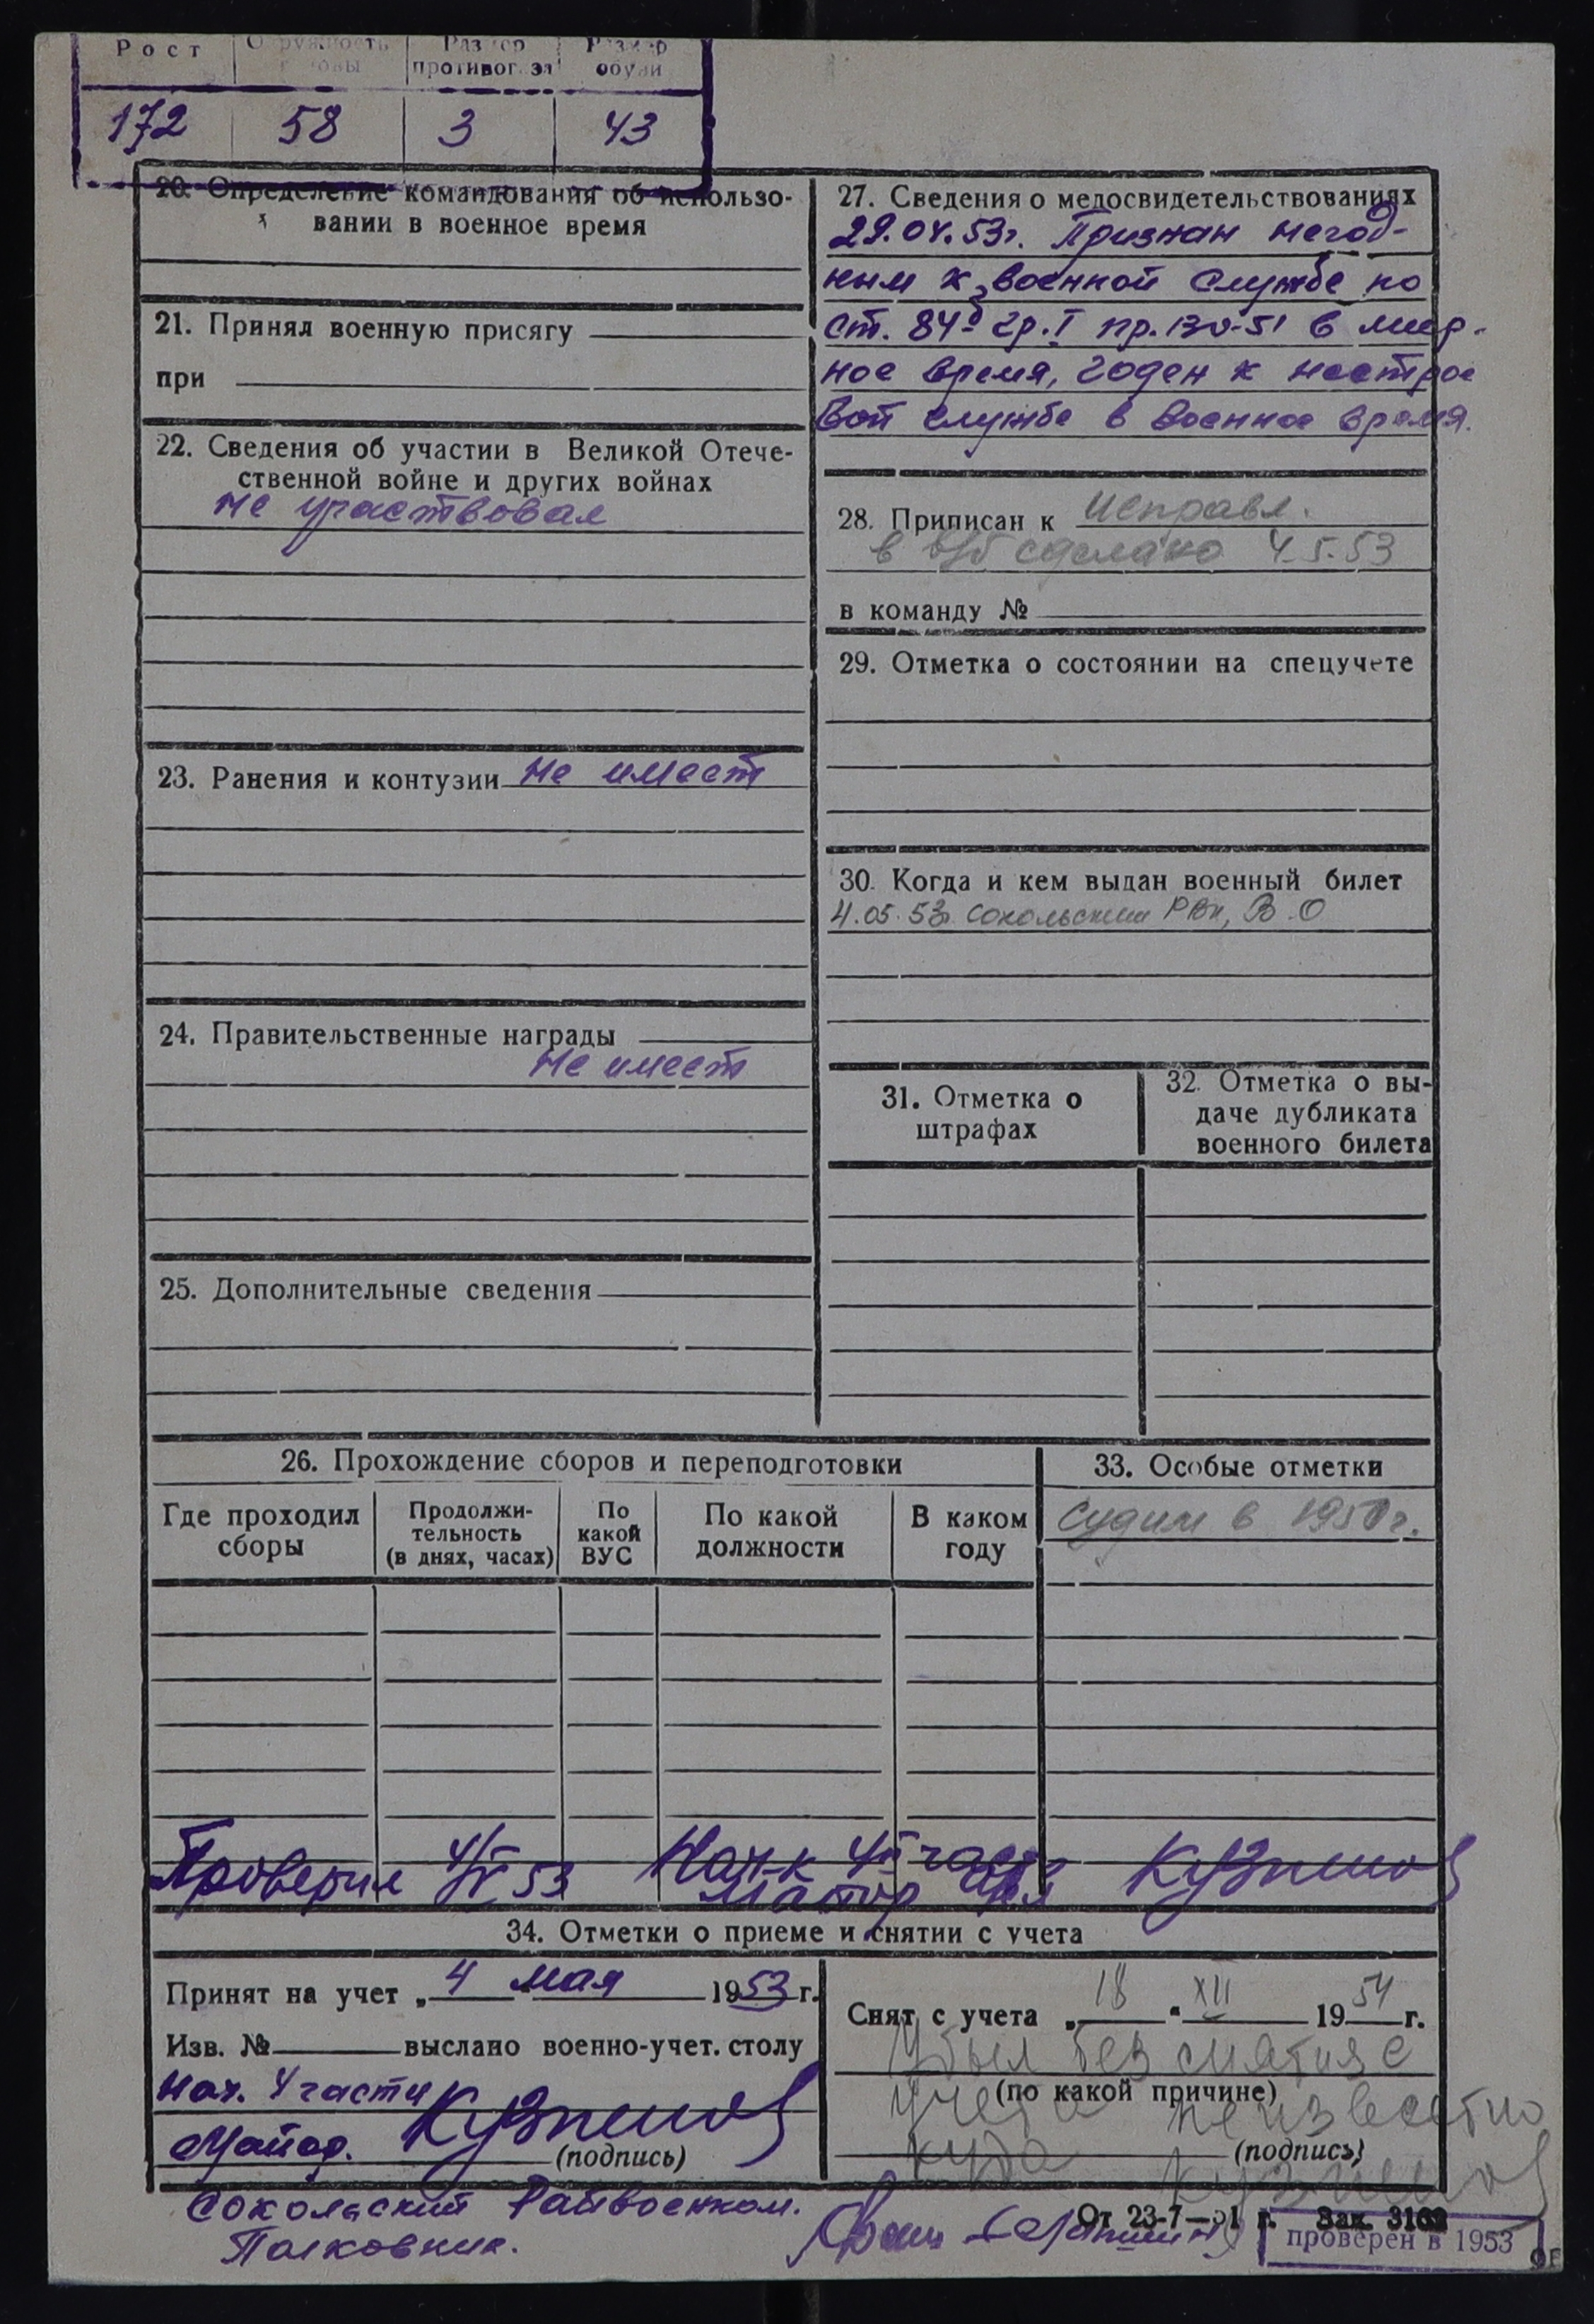 Рост
Окружность головы
Размер противогаза
Размер обуви
172
58
3
43
20. Определение командования об использо-
вании в военное время
21. Принял военную присягу
при
22. Сведения об участии в Великой Отече-
ственной войне и других войнах
не участвовал
23. Ранения и контузии не имеет
24. Правительственные награды
Не имеет
25. Дополнительные сведения
27. Сведения о медосвидетельствованиях
29.04.53г. Признан негод-
ным к военной службе по
ст. 84 гр. I пр. 130-51 в мир-
ное время, годен к нестрое
вой службе в военное время.
28. Приписан к Исправл.
в в/б сделано 4.5.53
в команду №
29. Отметка о состоянии на спецучете
30. Когда и кем выдан военный билет
4.05.53г. Сокольским РВк, В.О
31. Отметка о
штрафах
32. Отметка о вы-
даче дубликата
военного билета
26. Прохождение сборов и переподготовки
Где проходил
сборы
Продолжи-
тельность
(в днях, часах)
По
какой
ВУС
По какой
должности
В каком
году
33. Особые отметки
Судим в 1950г.
Проверил 4/V 53 Нач-к 4й части
Майор
34. Отметки о приеме и снятии с учета
Принят на учет „4 мая 1953 г.
Изв. № высла­но военно-учет. столу
Нач. 4 части
Майор.
(подпись)
Снят с учета „18 “ XII 1954 г.
Убыл без снятия с
(по какой причине)
учета неизвестно
куда
(подпись)
Сокольский Райвоенком.
Полковник.
От 23-7—51 г. Зак. 3162
проверен в 1953